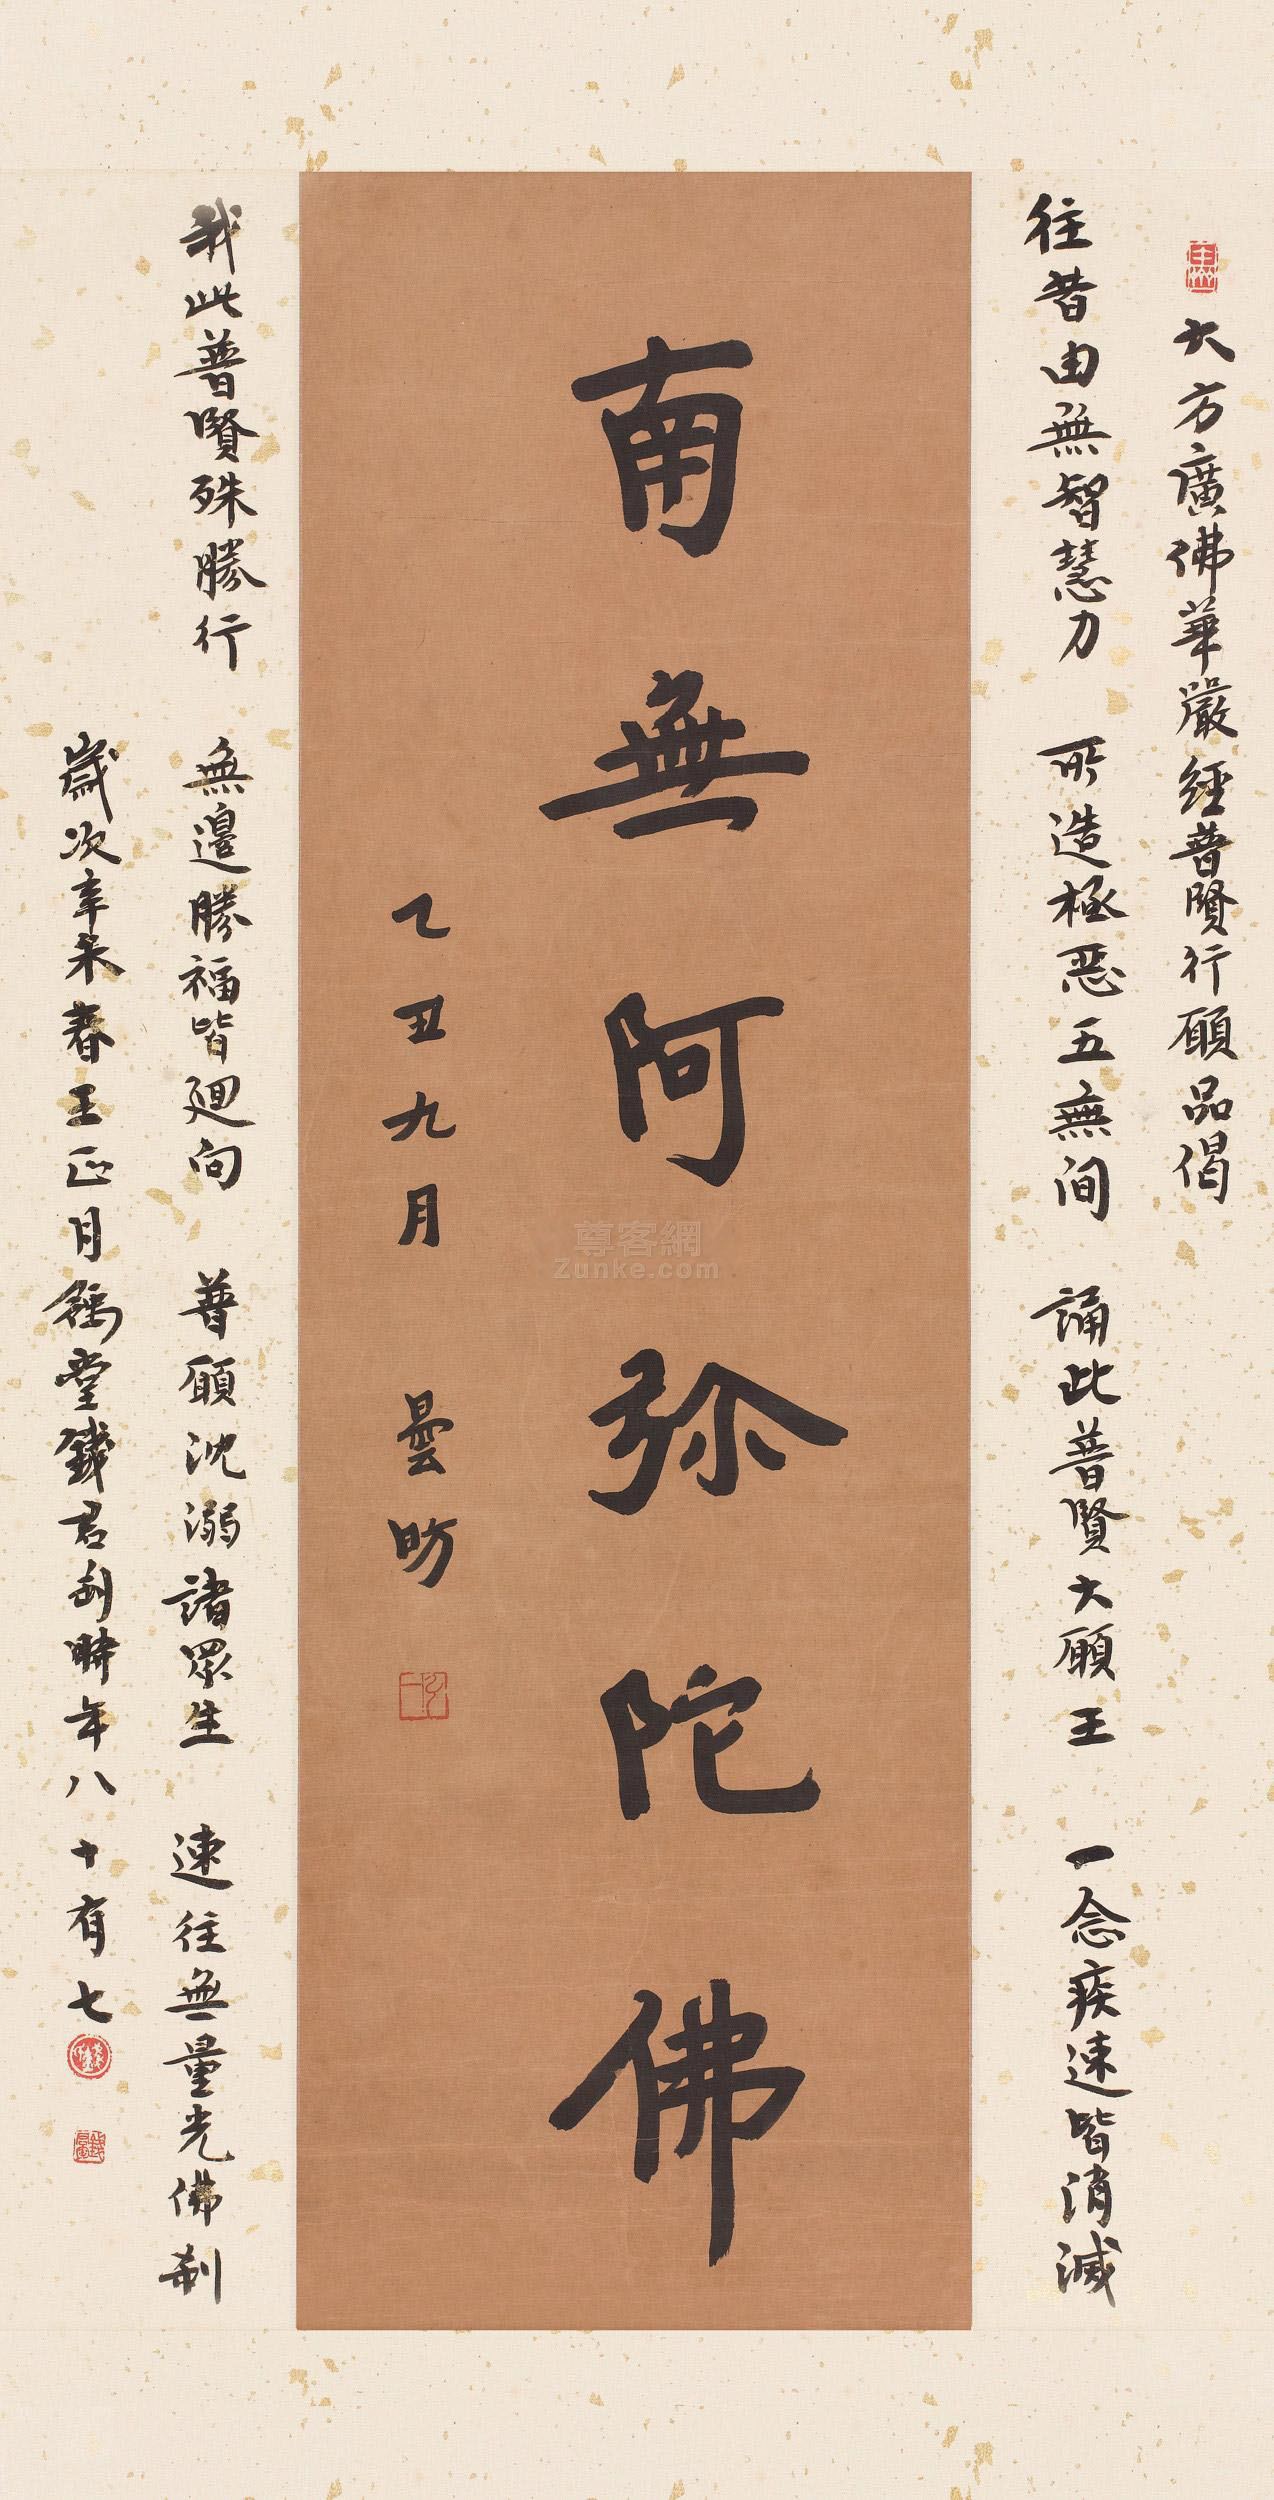 大方廣佛華嚴經普賢行願品偈
往昔由無智慧力 所造極惡五無间 誦此普賢大願王 一念疾速皆消滅
南無阿弥陀佛
乙丑九月 曇昉
我此普賢殊勝行 無邊勝福皆廻向 普願沈溺諸眾生 速往無量光佛剎
歲次辛未春王正月 堂錢君匋時年八十有七
尊客網
Zunke.com